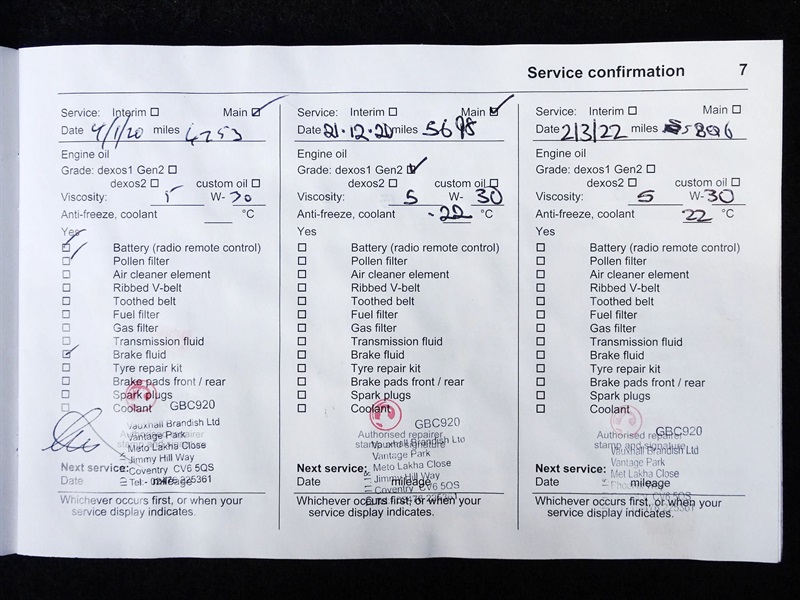 Service confirmation 7
Service: Interim Main
Date 4/1/20 miles 4253
Engine oil
Grade: dexos1 Gen2
dexos2 custom oil
Viscosity: 5 W-30
Anti-freeze, coolant °C
Yes
Battery (radio remote control)
Pollen filter
Air cleaner element
Ribbed V-belt
Toothed belt
Fuel filter
Gas filter
Transmission fluid
Brake fluid
Tyre repair kit
Brake pads front / rear
Spark plugs
Coolant
GBC920
Vauxhall Brandish Ltd
Authorised repairer
Vantage Park
stamp and signature
Meto Lakha Close
Jimmy Hill Way
Next service:
Coventry CV6 5QS
Date mileage
Whichever occurs first, or when your
service display indicates.
Service: Interim Main
Date 21.12.20 miles 5698
Engine oil
Grade: dexos1 Gen2
dexos2 custom oil
Viscosity: 5 W-30
Anti-freeze, coolant -22 °C
Yes
Battery (radio remote control)
Pollen filter
Air cleaner element
Ribbed V-belt
Toothed belt
Fuel filter
Gas filter
Transmission fluid
Brake fluid
Tyre repair kit
Brake pads front / rear
Spark plugs
Coolant
GBC920
Authorised repairer
Vauxhall Brandish Ltd
stamp and signature
Vantage Park
Meto Lakha Close
Next service:
Jimmy Hill Way
Coventry CV6 5QS
Date mileage
Whichever occurs first, or when your
service display indicates.
Service: Interim Main
Date 2/3/22 miles 5896
Engine oil
Grade: dexos1 Gen2
dexos2 custom oil
Viscosity: 5 W-30
Anti-freeze, coolant 22 °C
Yes
Battery (radio remote control)
Pollen filter
Air cleaner element
Ribbed V-belt
Toothed belt
Fuel filter
Gas filter
Transmission fluid
Brake fluid
Tyre repair kit
Brake pads front / rear
Spark plugs
Coolant
GBC920
Authorised repairer
Vauxhall Brandish Ltd
stamp and signature
Vantage Park
Next service:
Lakha Close
CV6 5QS
Date mileage
Whichever occurs first, or when your
service display indicates.